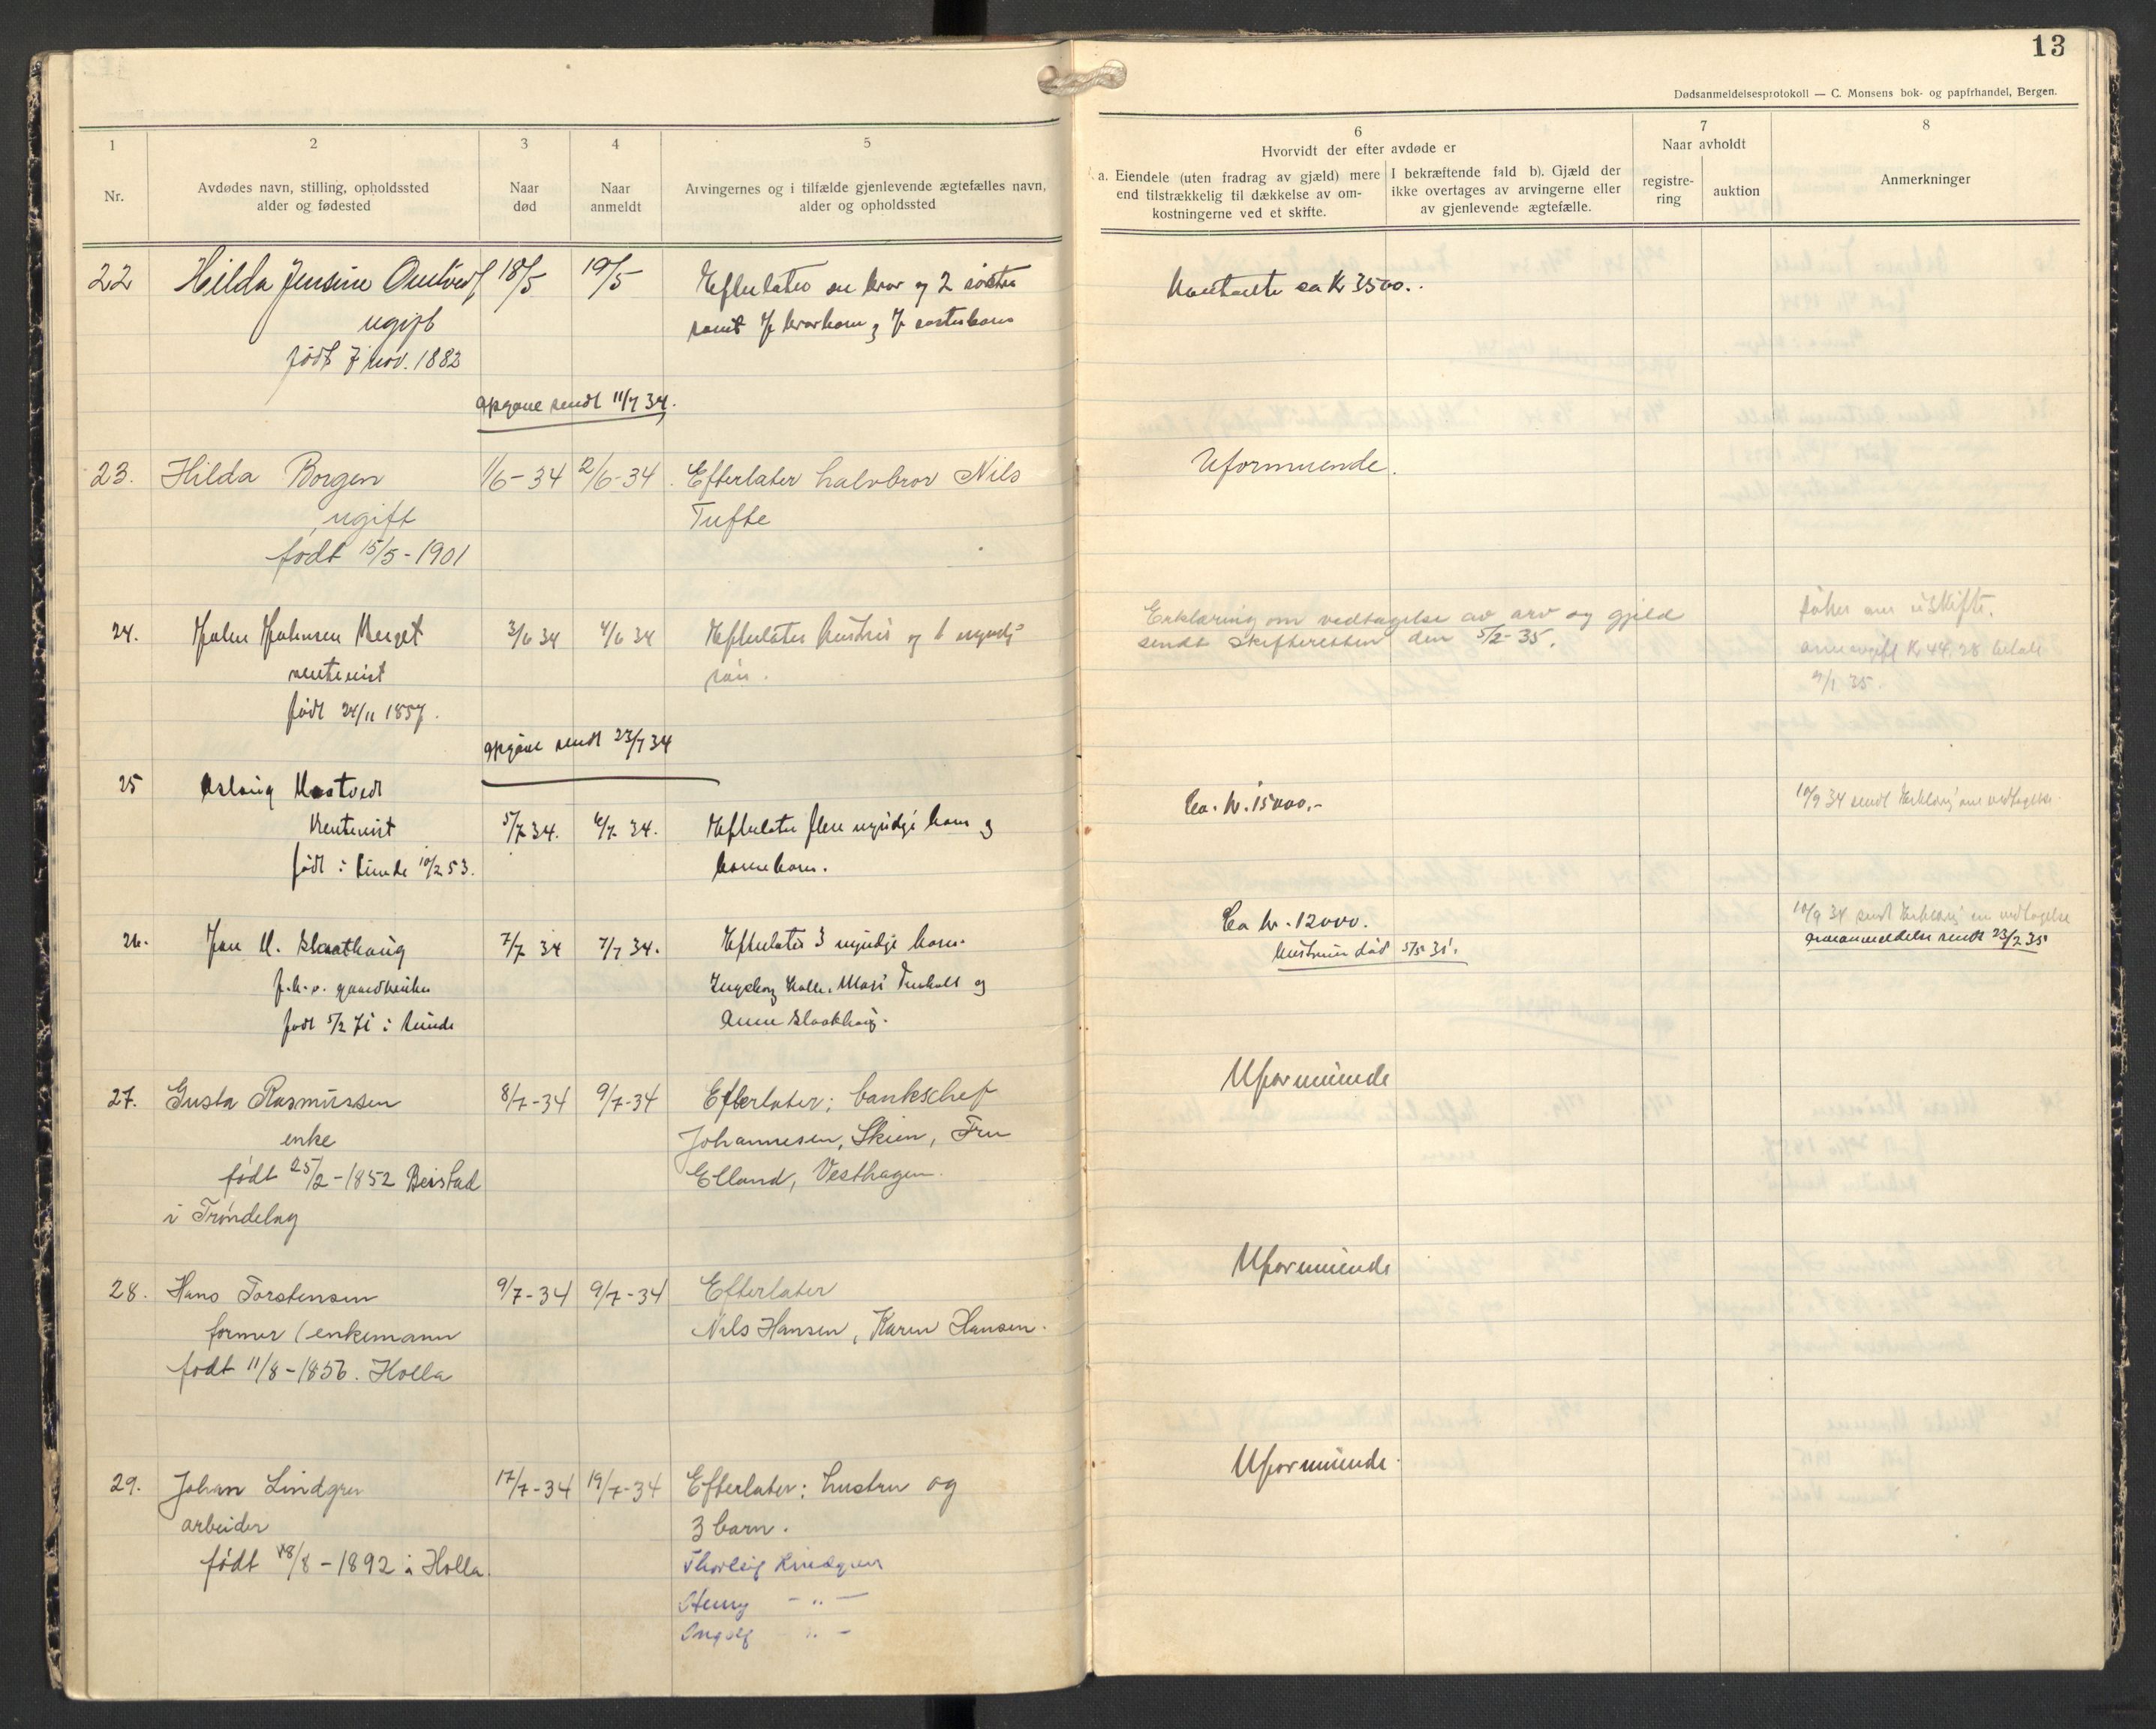 13
Dødsanmeldelsesprotokoll — C. Monsens bok- og papirhandel, Bergen.
1
Nr.
2
Avdødes navn, stilling, opholdssted
alder og fødested
3
Naar
død
4
Naar
anmeldt
5
Arvingernes og i tilfælde gjenlevende ægtefælles navn,
alder og opholdssted
6
Hvorvidt der efter avdøde er
a. Eiendele (uten fradrag av gjæld) mere
end tilstrækkelig til dækkelse av om-
kostningerne ved et skifte.
I bekræftende fald b). Gjæld der
ikke overtages av arvingerne eller
av gjenlevende ægtefælle.
7
Naar avholdt
registre-
ring
auktion
8
Anmerkninger
22 Hilda Jensine 18/5 19/5 Efterlater en bror og 2 søstre
ugift samt brorbarn og søsterbarn
født 7 nov. 1882
Kontanter ca Kr 3500.-
opgave sendt 11/7 34.
23. Hilda Borgen 1/6-34 2/6-34. Efterlater halvbror Nils
ugift Tufte
født 15/5-1901
Uformuende.
24. Berget 3/6 34 4/6 34 Efterlater hustru og 1 myndig
rentenist søn.
født 24/11 1857.
Erklæring om vedtagelse av arv og gjeld
sendt Skifteretten den 5/2-35.
søker om uskifte.
arveavgift Kr 44,28 betalt
9/1 35.
opgave sendt 23/7 34
25 Aslaug
Rentenist 5/7 34. 6/7 34. Efterlater flere myndige barn og
født i Lunde 10/2 53. barnebarn.
Ca. kr. 15000,-
10/9 34 sendt Erklæring om vedtagelse.
26. Jon H. Slaathaug 7/7 34 7/7 34. Efterlater 3 myndige barn.
f.h.v. gaardbruker Ingeborg Kolle, Mari og
født 5/2 71 i Lunde Anne Slaathaug.
Ca kr. 12000.
hustruen død 5/5 35.
10/9 34 sendt Erklæring om vedtagelse
sendt 23/2 35
27. Gusta Rasmussen 8/7-34 9/7-34 Efterlater: bankschef
enke Johannesen, Skien, Fru
født 25/2-1852 Beistad Elland, Vesthagen.
i Trøndelag
Uformuende
28. Hans Torstensen 9/7-34 9/7-34 Efterlater
former (enkemann Nils Hansen, Karen Hansen.
født 11/8-1856. Holla
Uformuende
29. Johan Lindgren 17/7-34 19/7-34 Efterlater: hustru og
arbeider 3 barn.
født 18/8-1892 i Holla. Thorleif Lindgren
Henry - „ -
Ingolf - „ -
Uformuende.